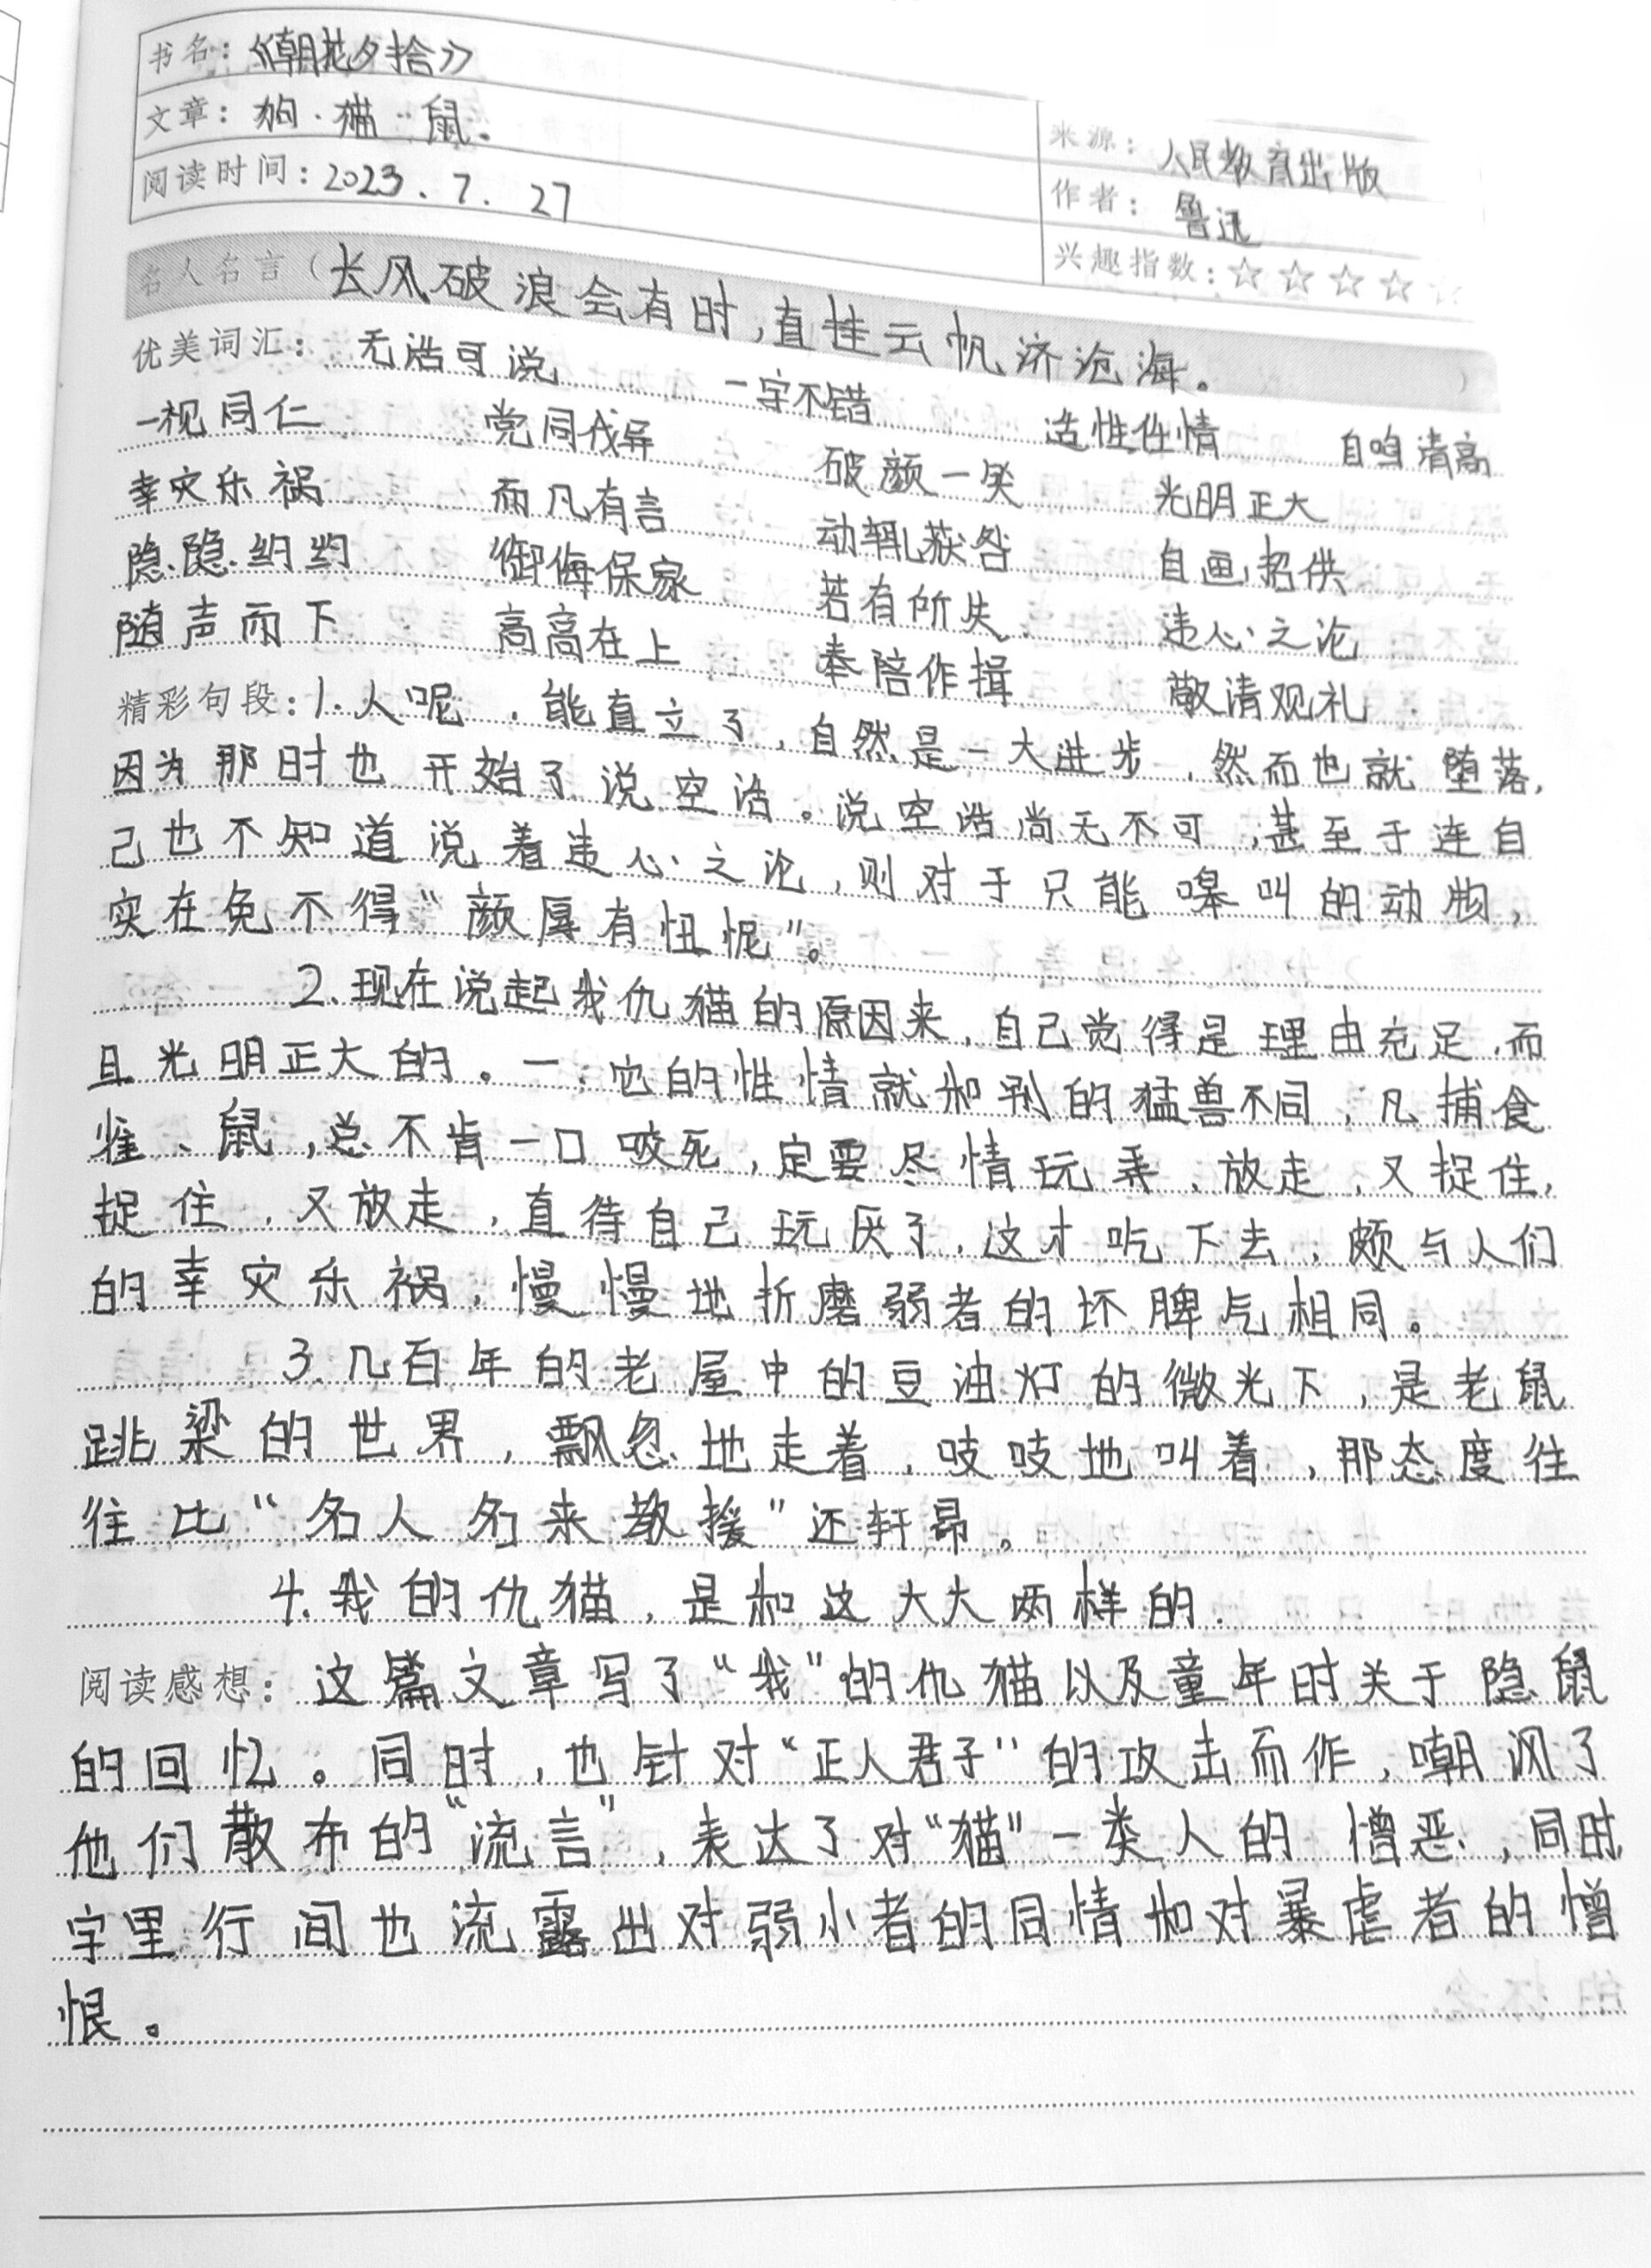 书名：《朝花夕拾》
文章：狗·猫·鼠.
阅读时间：2023.7.27
来源：人民教育出版
作者：鲁迅
兴趣指数：☆☆☆☆☆
名人名言（长风破浪会有时,直挂云帆济沧海。）
优美词汇：无话可说 一字不错 造性任情 自鸣清高
一视同仁 党同伐异 破颜一笑 光明正大
幸灾乐祸 而凡有言 动辄获咎 自画招供
隐隐约约 御侮保家 若有所失 违心之论
随声而下 高高在上 奉陪作揖 敬请观礼
精彩句段：1.人呢，能直立了，自然是一大进步，然而也就堕落,
因为那时也开始了说空话。说空话尚无不可，甚至于连自
己也不知道说着违心之论，则对于只能嗥叫的动物，
实在免不得“颜厚有忸怩”。
2.现在说起我仇猫的原因来，自己觉得是理由充足，而
且光明正大的。一，它的性情就和别的猛兽不同，凡捕食
雀、鼠，总不肯一口咬死，定要尽情玩弄，放走，又捉住，
捉住，又放走，直待自己玩厌了，这才吃下去，颇与人们
的幸灾乐祸，慢慢地折磨弱者的坏脾气相同。
3.几百年的老屋中的豆油灯的微光下，是老鼠
跳梁的世界，飘忽地走着，吱吱地叫着，那态度往
往比“名人名来教授”还轩昂。
4.我的仇猫，是和这大大两样的.
阅读感想：这篇文章写了“我”的仇猫以及童年时关于隐鼠
的回忆。同时，也针对“正人君子”的攻击而作，嘲讽了
他们散布的“流言”，表达了对“猫”一类人的憎恶，同时,
字里行间也流露出对弱小者的同情和对暴虐者的憎
恨。